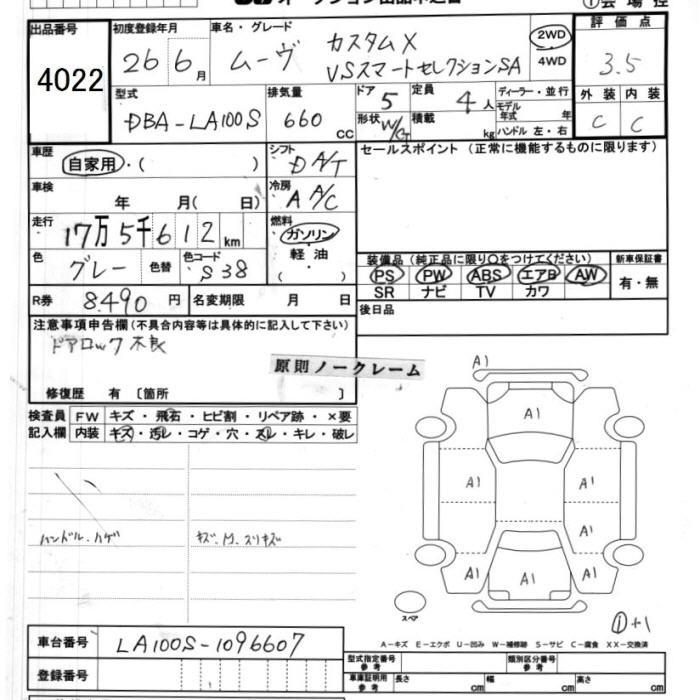 出品番号 初度登録年月 車名・グレード 評価点
4022 26 6月 ムーヴ カスタムX 2WD 3.5
VSスマートセレクションSA 4WD
型式 排気量 ドア 5 定員 4人 ディーラー・並行 外装 内装
DBA-LA100S 660cc 形状 W/G 積載 kg モデル年式 年 C C
ハンドル 左・右
車歴 自家用・( ) シフト D A/T セールスポイント (正常に機能するものに限ります)
車検 年 月( 日) 冷房 A A/C
走行 17万5千612km 燃料 ガソリン
色 グレー 色替 色コード S38 軽油
・( )
装備品 (純正品に限り〇をつけてください) 新車保証書
PS PW ABS エアB AW 有・無
SR ナビ TV カワ
R券 8490円 名変期限 月 日 後日品
注意事項申告欄 (不具合内容等は具体的に記入して下さい)
ドアロック不良
原則ノークレーム
修復歴 有 〔箇所 〕
検査員 FW キズ・飛石・ヒビ割・リペア跡・×要
記入欄 内装 キズ・汚レ・コゲ・穴・スレ・キレ・破レ
ハンドル、ハゲ
A1
A1
A1 A1
A1
A1 A1 A1
スペア
①+1
A-キズ E-エクボ U-凹み W-補修跡 S-サビ C-腐食 XX-交換済
車台番号 LA100S-1096607
登録番号
型式指定番号 参考 類別区分番号 参考
車庫証明用 参考 長さ cm 幅 cm 高さ cm